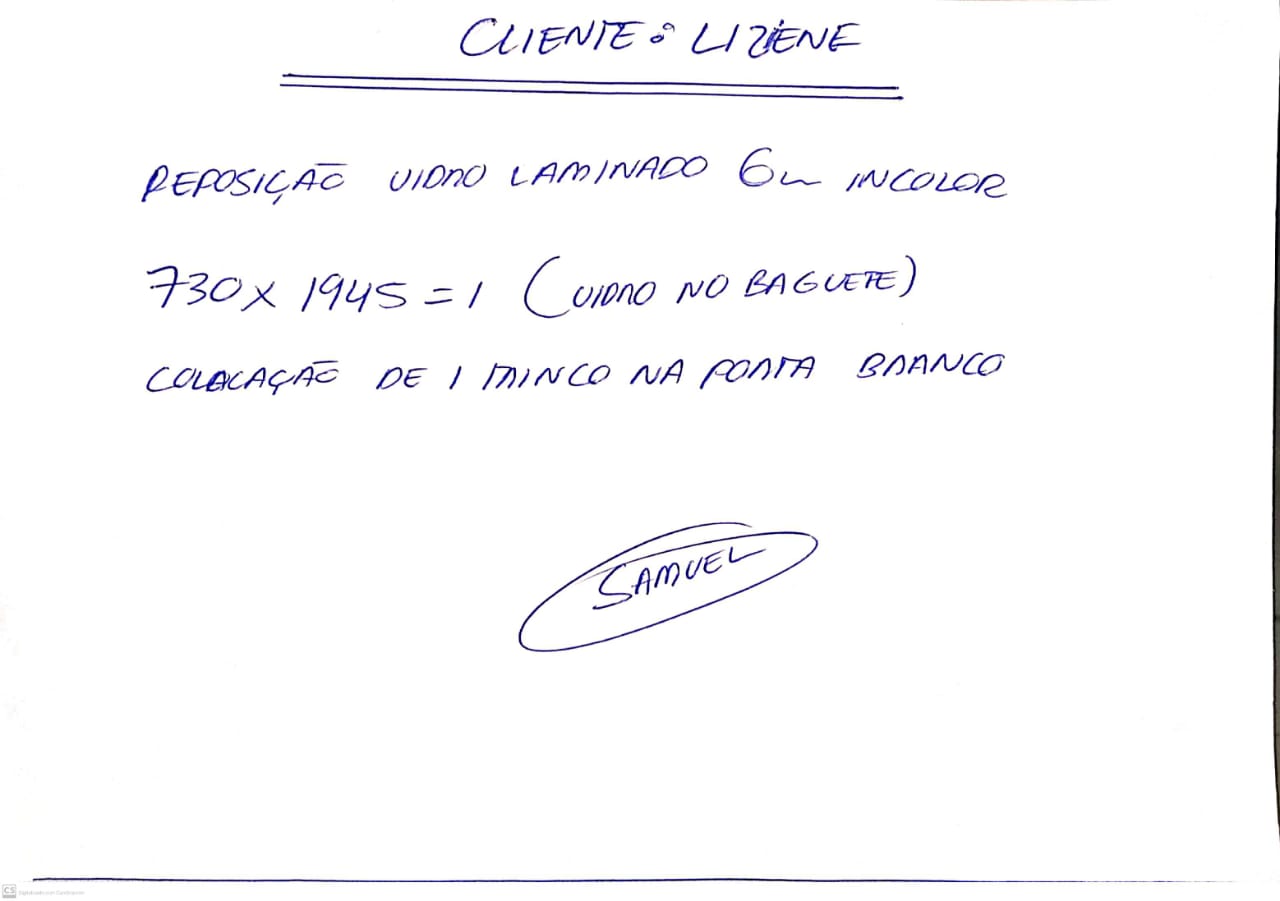 CLIENTE: LIZIENE
REPOSIÇÃO VIDRO LAMINADO 6m INCOLOR
730 x 1945 = 1 (VIDRO NO BAGUETE)
COLOCAÇÃO DE 1 TRINCO NA PORTA BRANCO
SAMUEL
CS Digitalizado com CamScanner